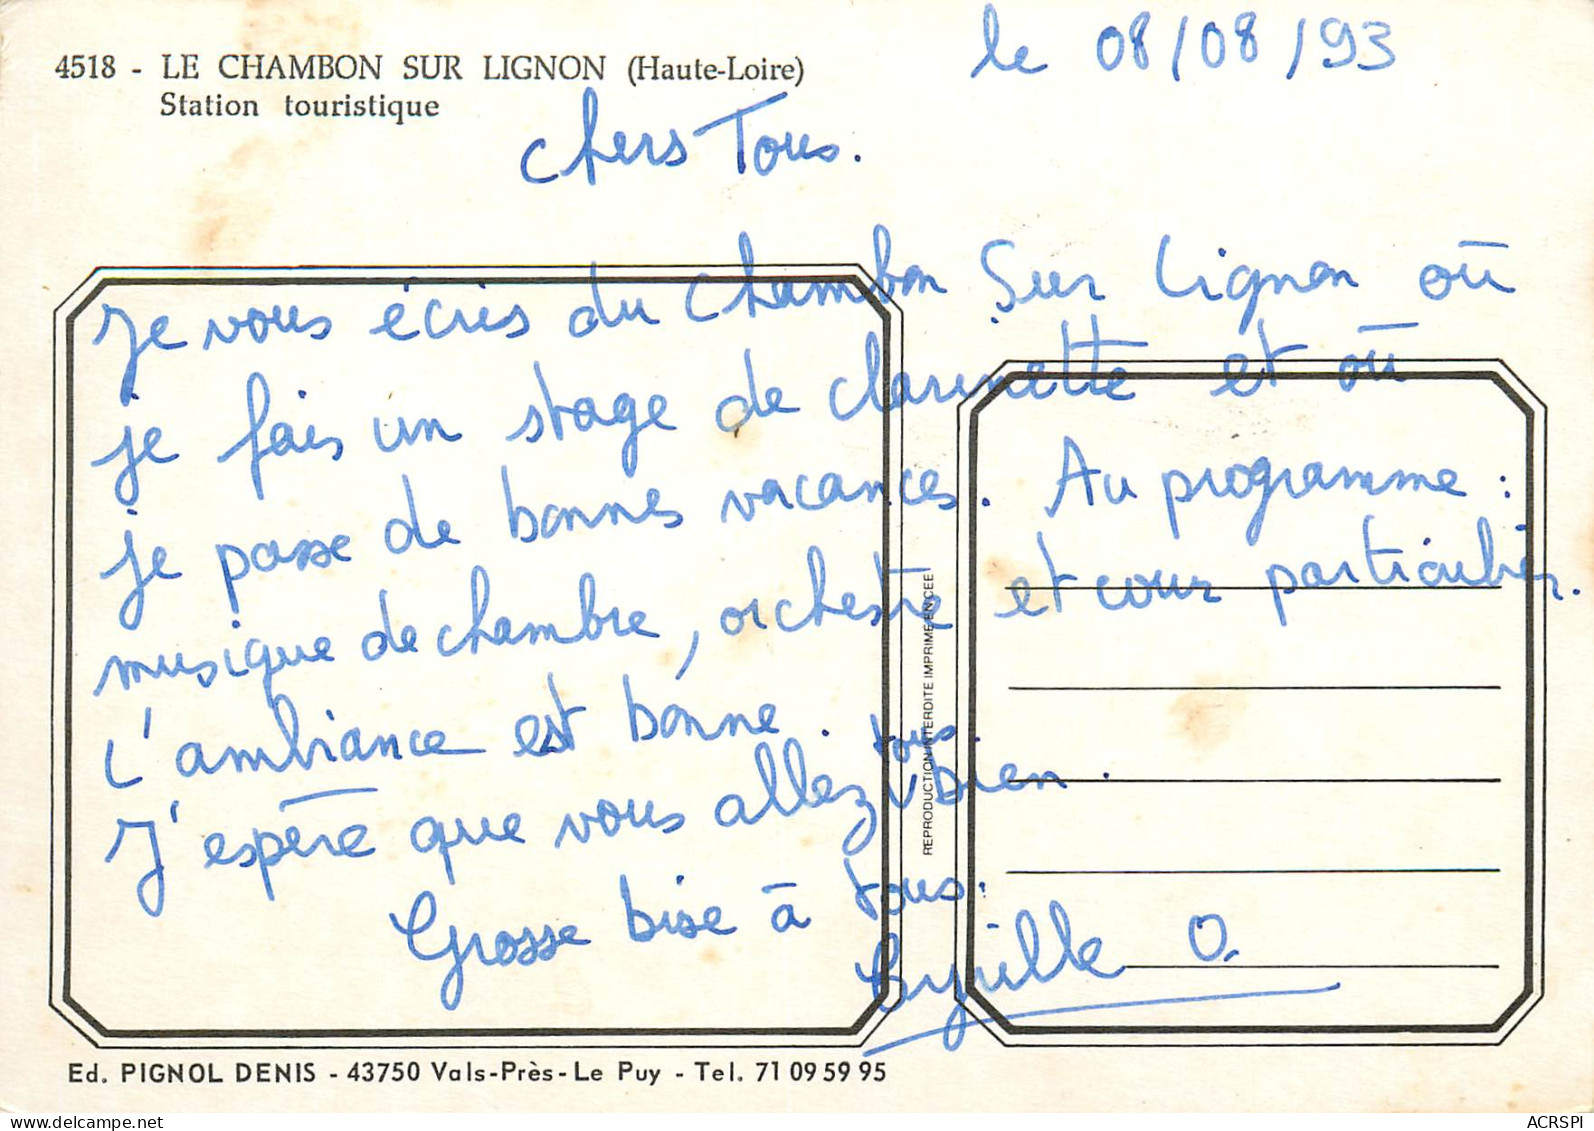 le 08/08/93
4518 - LE CHAMBON SUR LIGNON (Haute-Loire)
Station touristique
Chers Tous.
Je vous écris du Chambon Sur Lignon où
je fais un stage de clarinette et où
je passe de bonnes vacances. Au programme :
musique de chambre, orchestre et cour particulier.
L'ambiance est bonne.
J'espère que vous allez tous bien.
Grosse bise à tous.
Cyrille O.
REPRODUCTION INTERDITE IMPRIME EN CEE
Ed. PIGNOL DENIS - 43750 Vals-Près-Le Puy - Tel. 71 09 59 95
ACRSPI